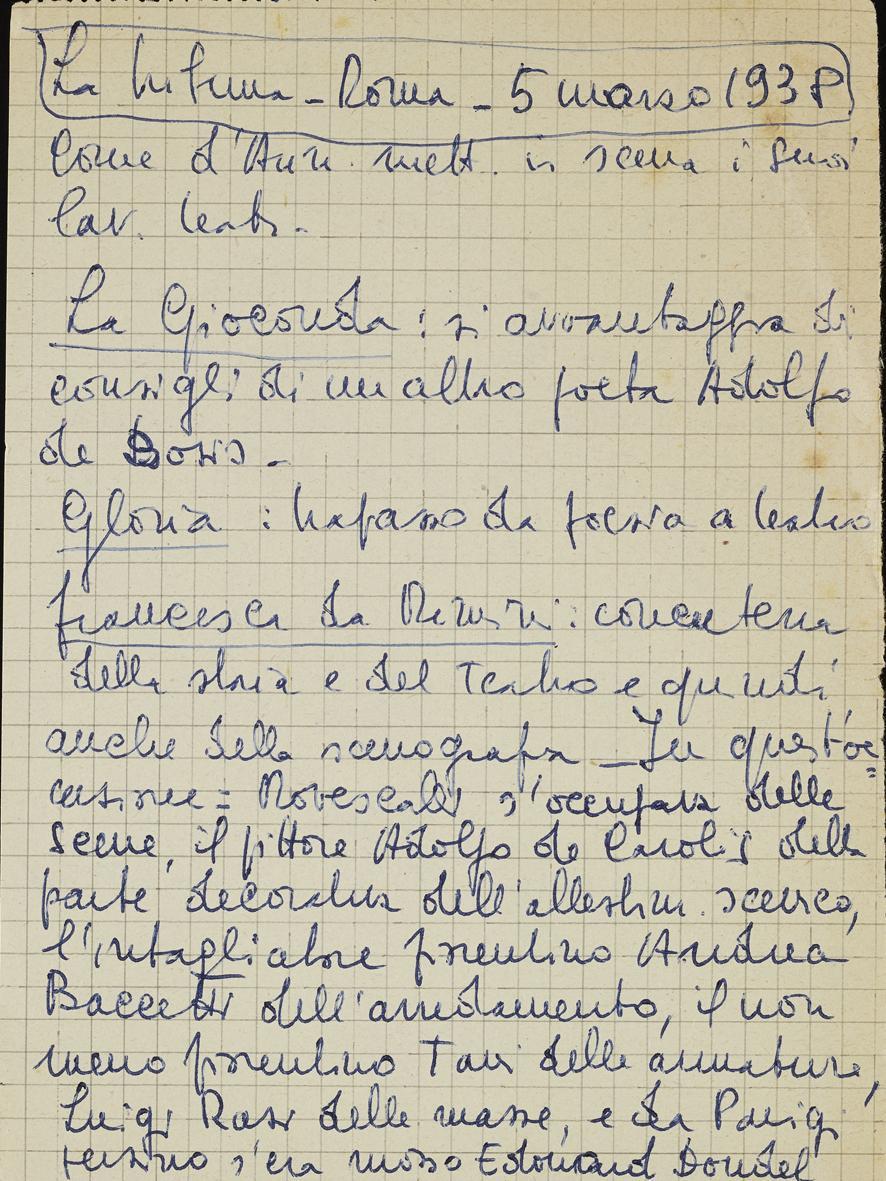 La tribuna - Roma - 5 marzo 1938
Come d'Ann. mett. in scena i suoi
lav. teatr.
La Gioconda : si avvantaggia di
consigli di un altro poeta Adolfo
de Bosis -
Gloria : trapasso da poesia a teatro
Francesca da Rimini : concatena
della storia e del Teatro e quindi
anche della scenografia - In quest'oc=
casione = Rovescalli s'occupava delle
scene, il pittore Adolfo de Carolis della
parte decorativa dell'allestim. scenico,
l'intagliatore fiorentino Andrea
Baccetti dell'arredamento, il non
meno fiorentino Tani delle armature,
Luigi Rasi delle masse, e da Parigi
persino s'era mosso Edouard Dondel